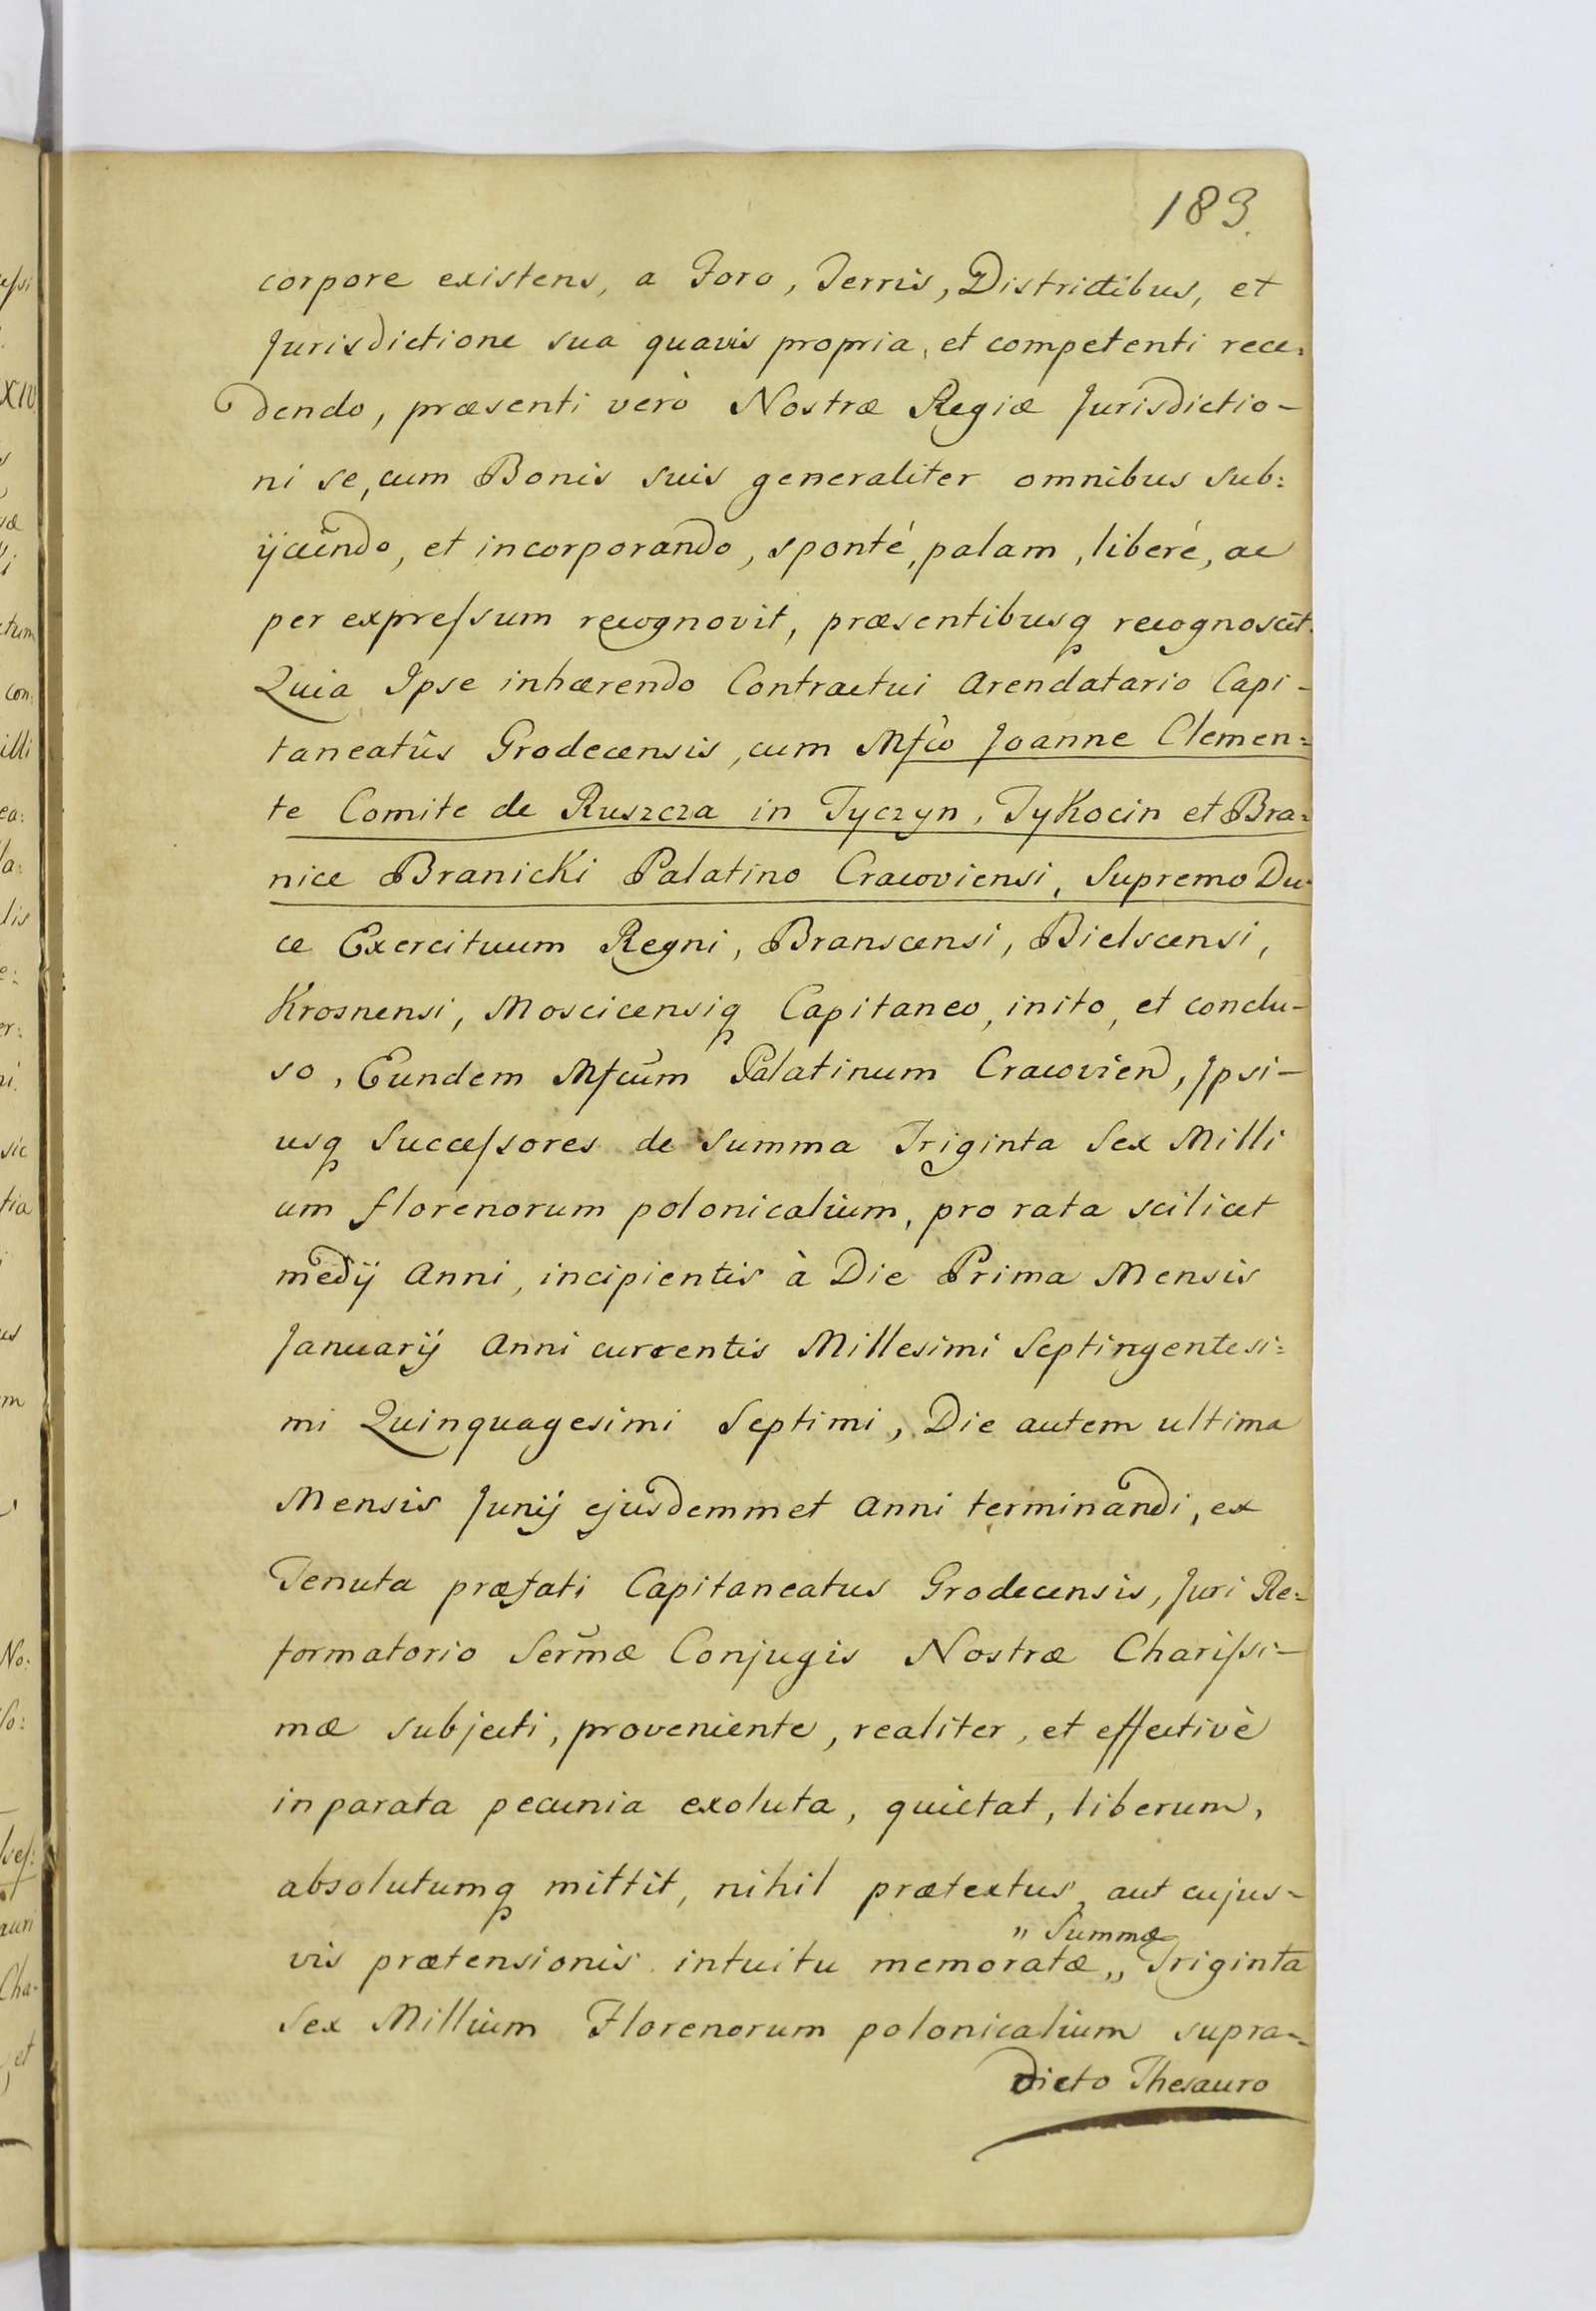 183.
corpore existens, a Foro, Terris, Districtibus, et
Jurisdictione sua quavis propria, et competenti rece:
dendo, præsenti verò Nostræ Regiæ Jurisdictio-
ni se, cum Bonis suis generaliter omnibus sub:
ijciendo, et incorporando, sponté, palam, liberé, ac
per expreſsum recognovit, præsentibusq recognoscit.
Quia Ipse inhærendo Contractui Arendatario Capi-
taneatûs Grodecensis, cum Mfco Joanne Clemen=
te Comite de Ruszcza in Tyczyn, Tykocin et Bra=
nice Branicki Palatino Cracoviensi, Supremo Du-
ce Exercituum Regni, Branscensi, Bielscensi,
Krosnensi, Moscicensiq Capitaneo, inito, et conclu-
so, Eundem Mfcum Palatinum Cracovien, Ipsi-
usq Succeſsores de Summa Triginta Sex Milli
um florenorum polonicalium, pro rata scilicet
medij Anni, incipientis à Die Prima Mensis
Januarij Anni currentis Millesimi Septingentesi=
mi Quinquagesimi Septimi, Die autem ultima
Mensis Junij ejusdemmet Anni terminandi, ex
Tenuta præfati Capitaneatus Grodecensis, Juri Re=
formatorio Sermæ Conjugis Nostræ Chariſsi-
mæ subjecti, proveniente, realiter, et effectivè
in parata pecunia exoluta, quietat, liberum,
absolutumq mittit, nihil prætextus, aut cujus-
" Summæ
vis prætensionis intuitu memoratæ „ Triginta
Sex Millium Florenorum polonicalium supra-
dicto Thesauro